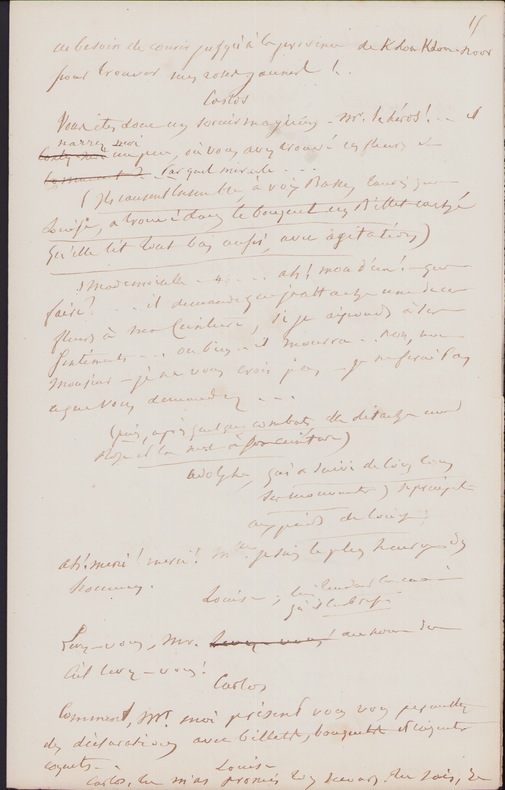 15
au besoin de courir jusqu'à la province de Kdon Kdom-noor
pour trouver un rosier jaune ! .
Carlos
Vous êtes donc un sorcier magicien - Mr. le héros ! - - et
narrez moi
un peu, où vous avez trouvé ces fleurs et
Par quel miracle . . . .
(Ils causent ensemble, à voix Basse, tandis que
Louise, a trouvé dans le bouquet un Billet caché
Qu'elle lit tout bas aussi, avec agitation)
- - ah ! mon dieu ! - que
faire ? - - - il demande que j'attache une de ces
fleurs à ma Ceinture, si je réponds à ses
Sentiments - - - ou bien - il mourra - - non, non
Monsieur - je ne vous crois pas - je ne ferai Pas
ce que Vous demandez - - -
(puis, après quelques combats, elle détache une
Rose et la met à sa ceinture)
Adolphe, qui a suivi de loin tous
ses mouvements, se précipite
aux pieds de Louise
ah ! merci ! merci ! je suis le plus heureux des
hommes.
Louise, lui tendant la main
qu'il baise
Levez-vous, Mr. levez-vous ! au nom du
Ciel levez-vous !
Carlos
Comment, Mr. moi présent vous vous permettez
des déclarations avec billets, bouquets et
coquets - -
Louise
Carlos, tu m'as promis ton secours. Tu sais, que